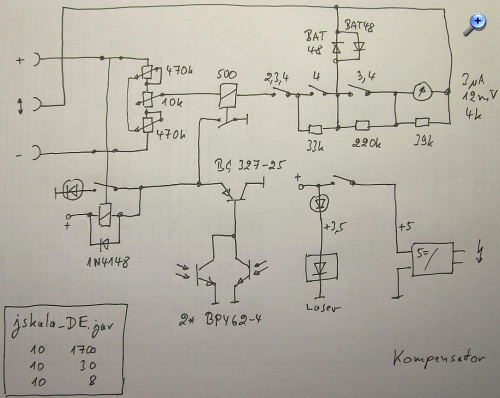 BAT
48
BAT48
+
470k
10k
470k
–
500
2,3,4
4
3,4
3µA
12mV
4k
33k
220k
39k
BC 327-25
+
1N4148
+
+3,5
+5
5=/
Laser
2* BPY62-4
jskala_DE.jar
10 1700
10 30
10 8
Kompensator